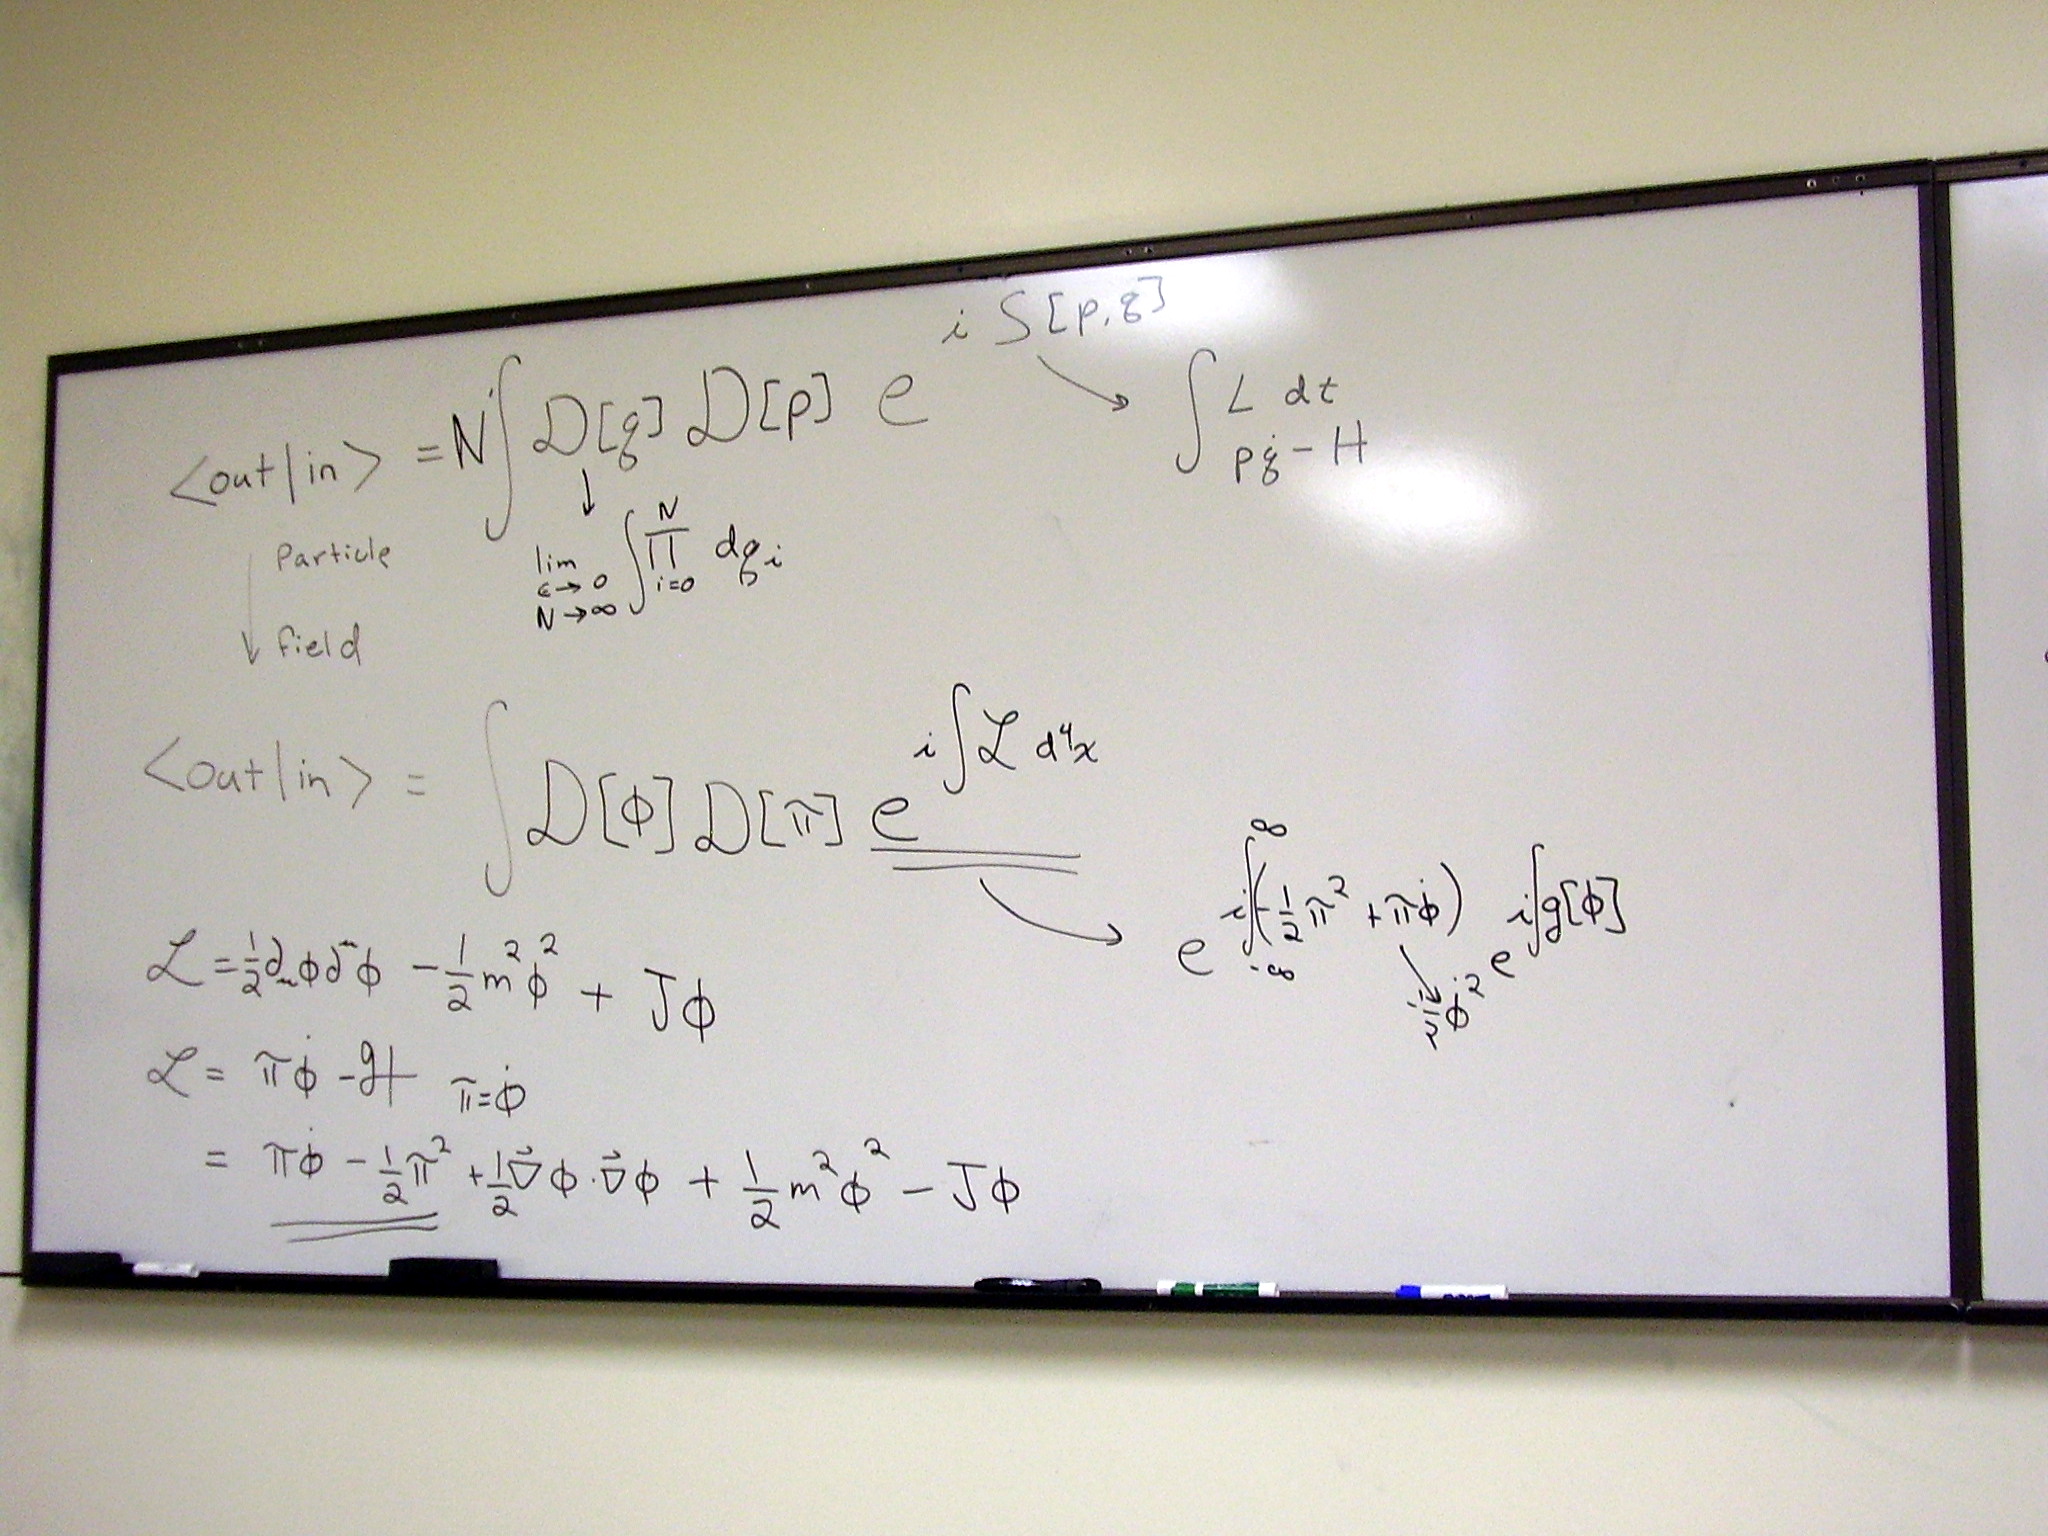 <out|in> = N∫ D[q] D[p] e^{i S[p,q]}
→ ∫ L dt
pq̇ - H
↓
lim ε→0 N→∞ ∫ ∏_{i=0}^{N} dq_i
Particle
↓ field
<out|in> = ∫ D[ϕ] D[π] e^{i∫ℒ d⁴x}
→ e^{i∫_{-∞}^{∞}(-½π² + πϕ̇)} e^{i∫g[ϕ]}
→ i½ϕ̇²
ℒ = ½∂_μϕ∂^μϕ - ½m²ϕ² + Jϕ
ℒ = πϕ̇ - ℋ π=ϕ̇
= πϕ̇ - ½π² + ½∇⃗ϕ·∇⃗ϕ + ½m²ϕ² - Jϕ